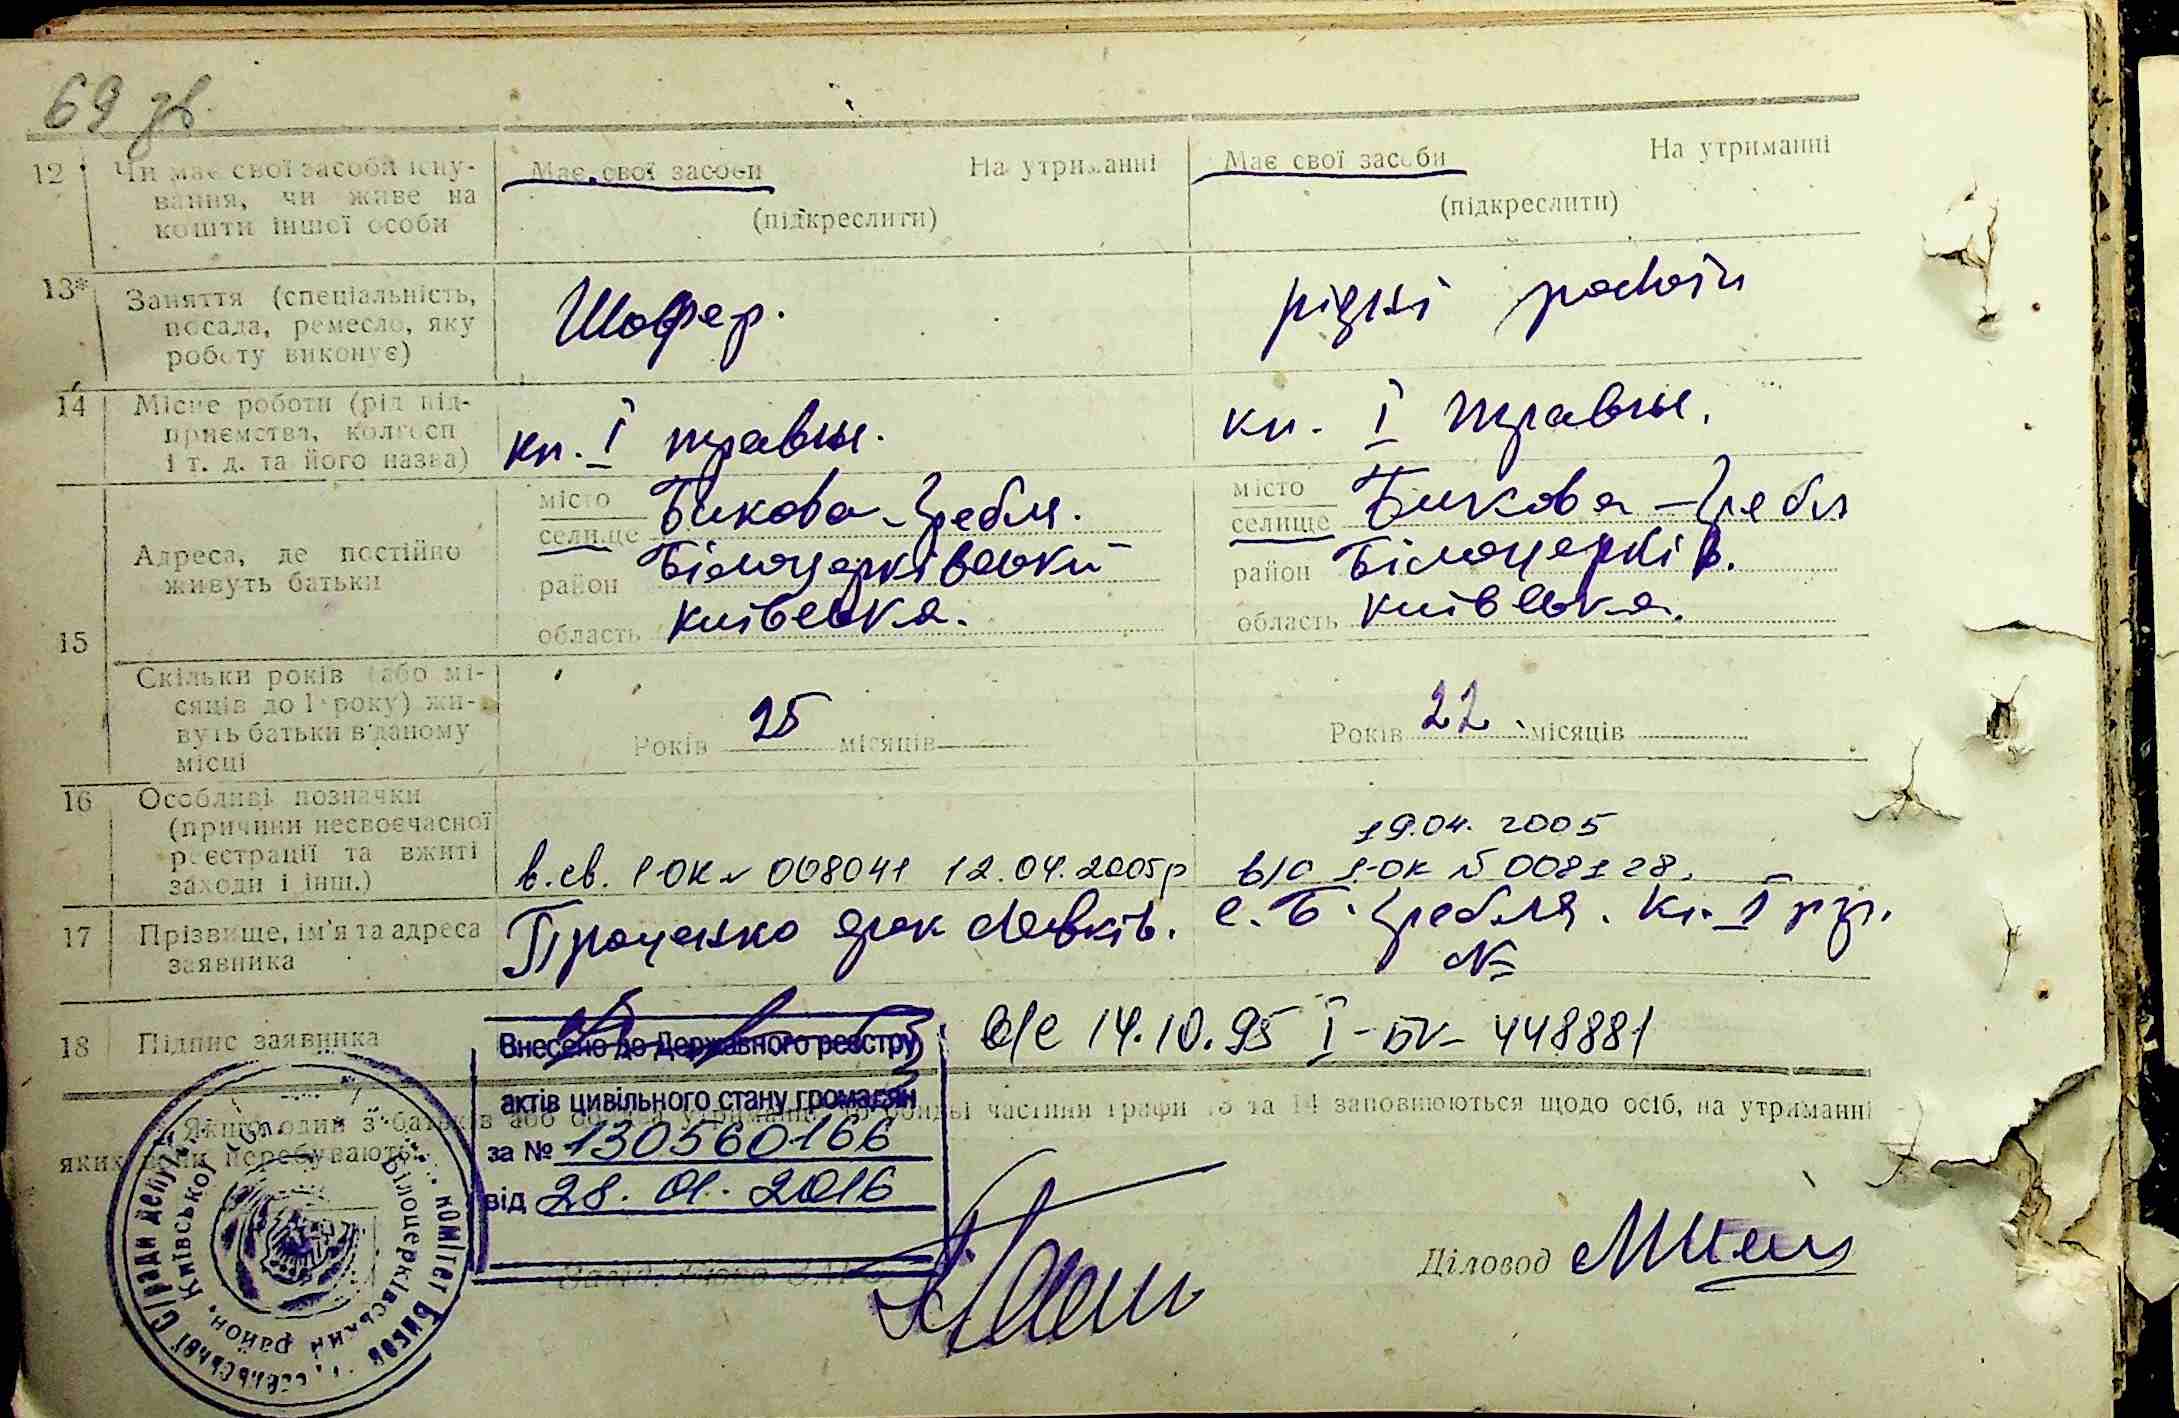 69 зв.
12 Чи має свої засоби існу-
вання, чи живе на
кошти іншої особи
Має свої засоби На утриманні
(підкреслити)
Має свої засоби На утриманні
(підкреслити)
13* Заняття (спеціальність,
посада, ремесло, яку
роботу виконує)
Шофер.
різні роботи
14 Місце роботи (рід під-
приємства, колгосп
і т. д. та його назва)
кп. І травня.
кп. І травня.
15
Адреса, де постійно
живуть батьки
місто
селище Бикова-Гребля.
район Білоцерківський
область Київська.
місто
селище Бикова-Гребля
район Білоцерків.
область Київська.
Скільки років (або мі-
сяців до 1 року) жи-
вуть батьки в даному
місці
Років 25 місяців
Років 22 місяців
16 Особливі позначки
(причини несвоєчасної
реєстрації та вжиті
заходи і інш.)
в.св. І-ОК № 008041 12.04.2005р
19.04.2005
в/с І-ОК № 008128.
17 Прізвище, ім'я та адреса
заявника
Проценко
с. Б. Гребля. Кп. І тр.
№
18 Підпис заявника
в/с 14.10.95 І-БК- 448881
Внесено до Державного реєстру
актів цивільного стану громадян
за № 130560166
від 28.01.2016
Якщо один з батьків або обидва на утриманні, то відповідні частини графи 13 та 14 заповнюються щодо осіб, на утриманні
яких вони перебувають.
Діловод
комітет Биков сільської Ради депутатів
Білоцерківський район, Київської